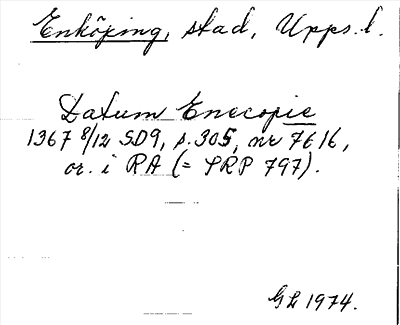 Enköping, stad, Upps. l.
Datum Enecopie
1367 8/12 SD9, s. 305, nr 7616,
or. i RA (= SRP 797).
GL 1974.